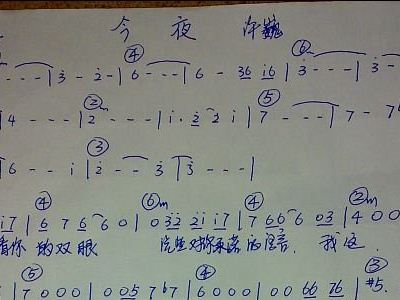 今夜 许巍
④ ⑥m
- - - | 3 - 2 - | 6 - - - | 6 - 36 i6 | 3 - - - | 3 -
② ⑤
4 - - - | 2 - - - | i · 2 2 i | 7 - - - | 7 - 7
③
6 - - i | 2 - - 3 | 3 - - - |
④ ⑥m ④ ②m
i7 | 6 7 6 6 0 | 0 32 2i i7 | 7 66 6 03 | 4 0 0
看你 的双眼 我这
⑤ ④ ③
| 7 0 0 0 | 0 05 7 b7 | 6 0 0 0 | 0 0 66 76 | #5.